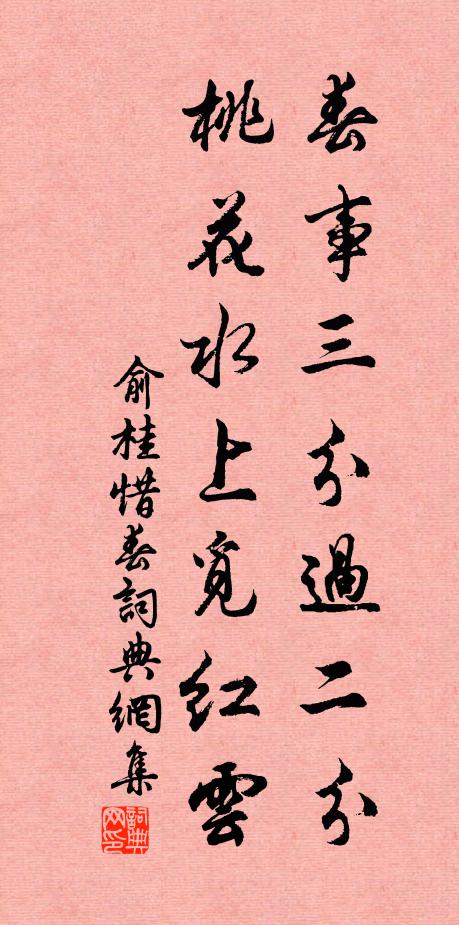 春事三分過二分
桃花水上覓紅雲
俞桂惜春詞典網集
詞典网印